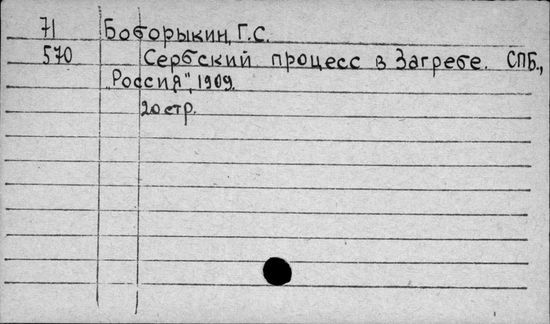 71 Боборыкин, Г.С.
570 Сербский процесс в Загребе. СПБ.,
„Россия", 1909.
20 стр.